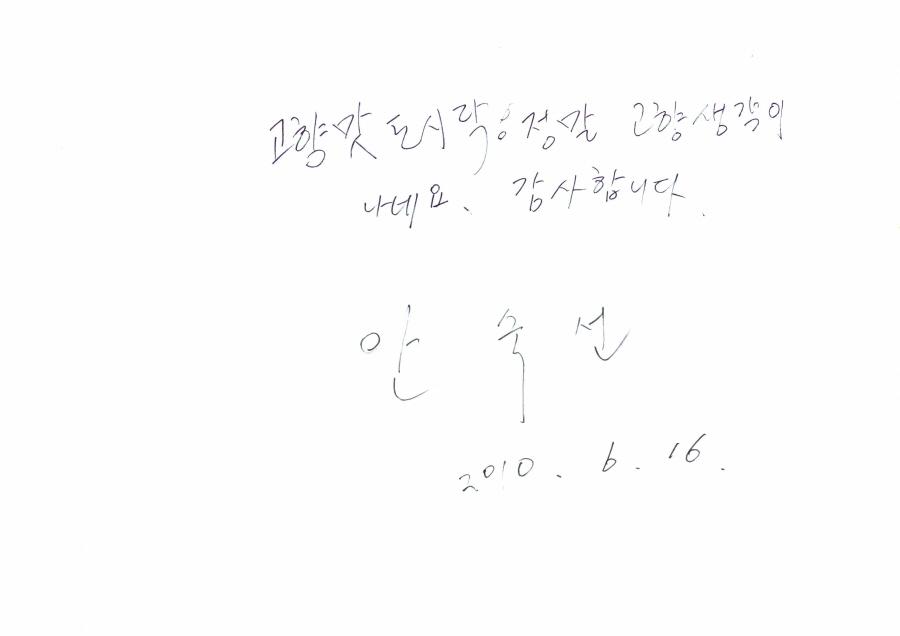 고향맛 도시락은 정갈 고향생각이
나네요. 감사합니다.
안 숙 선
2010. 6. 16.